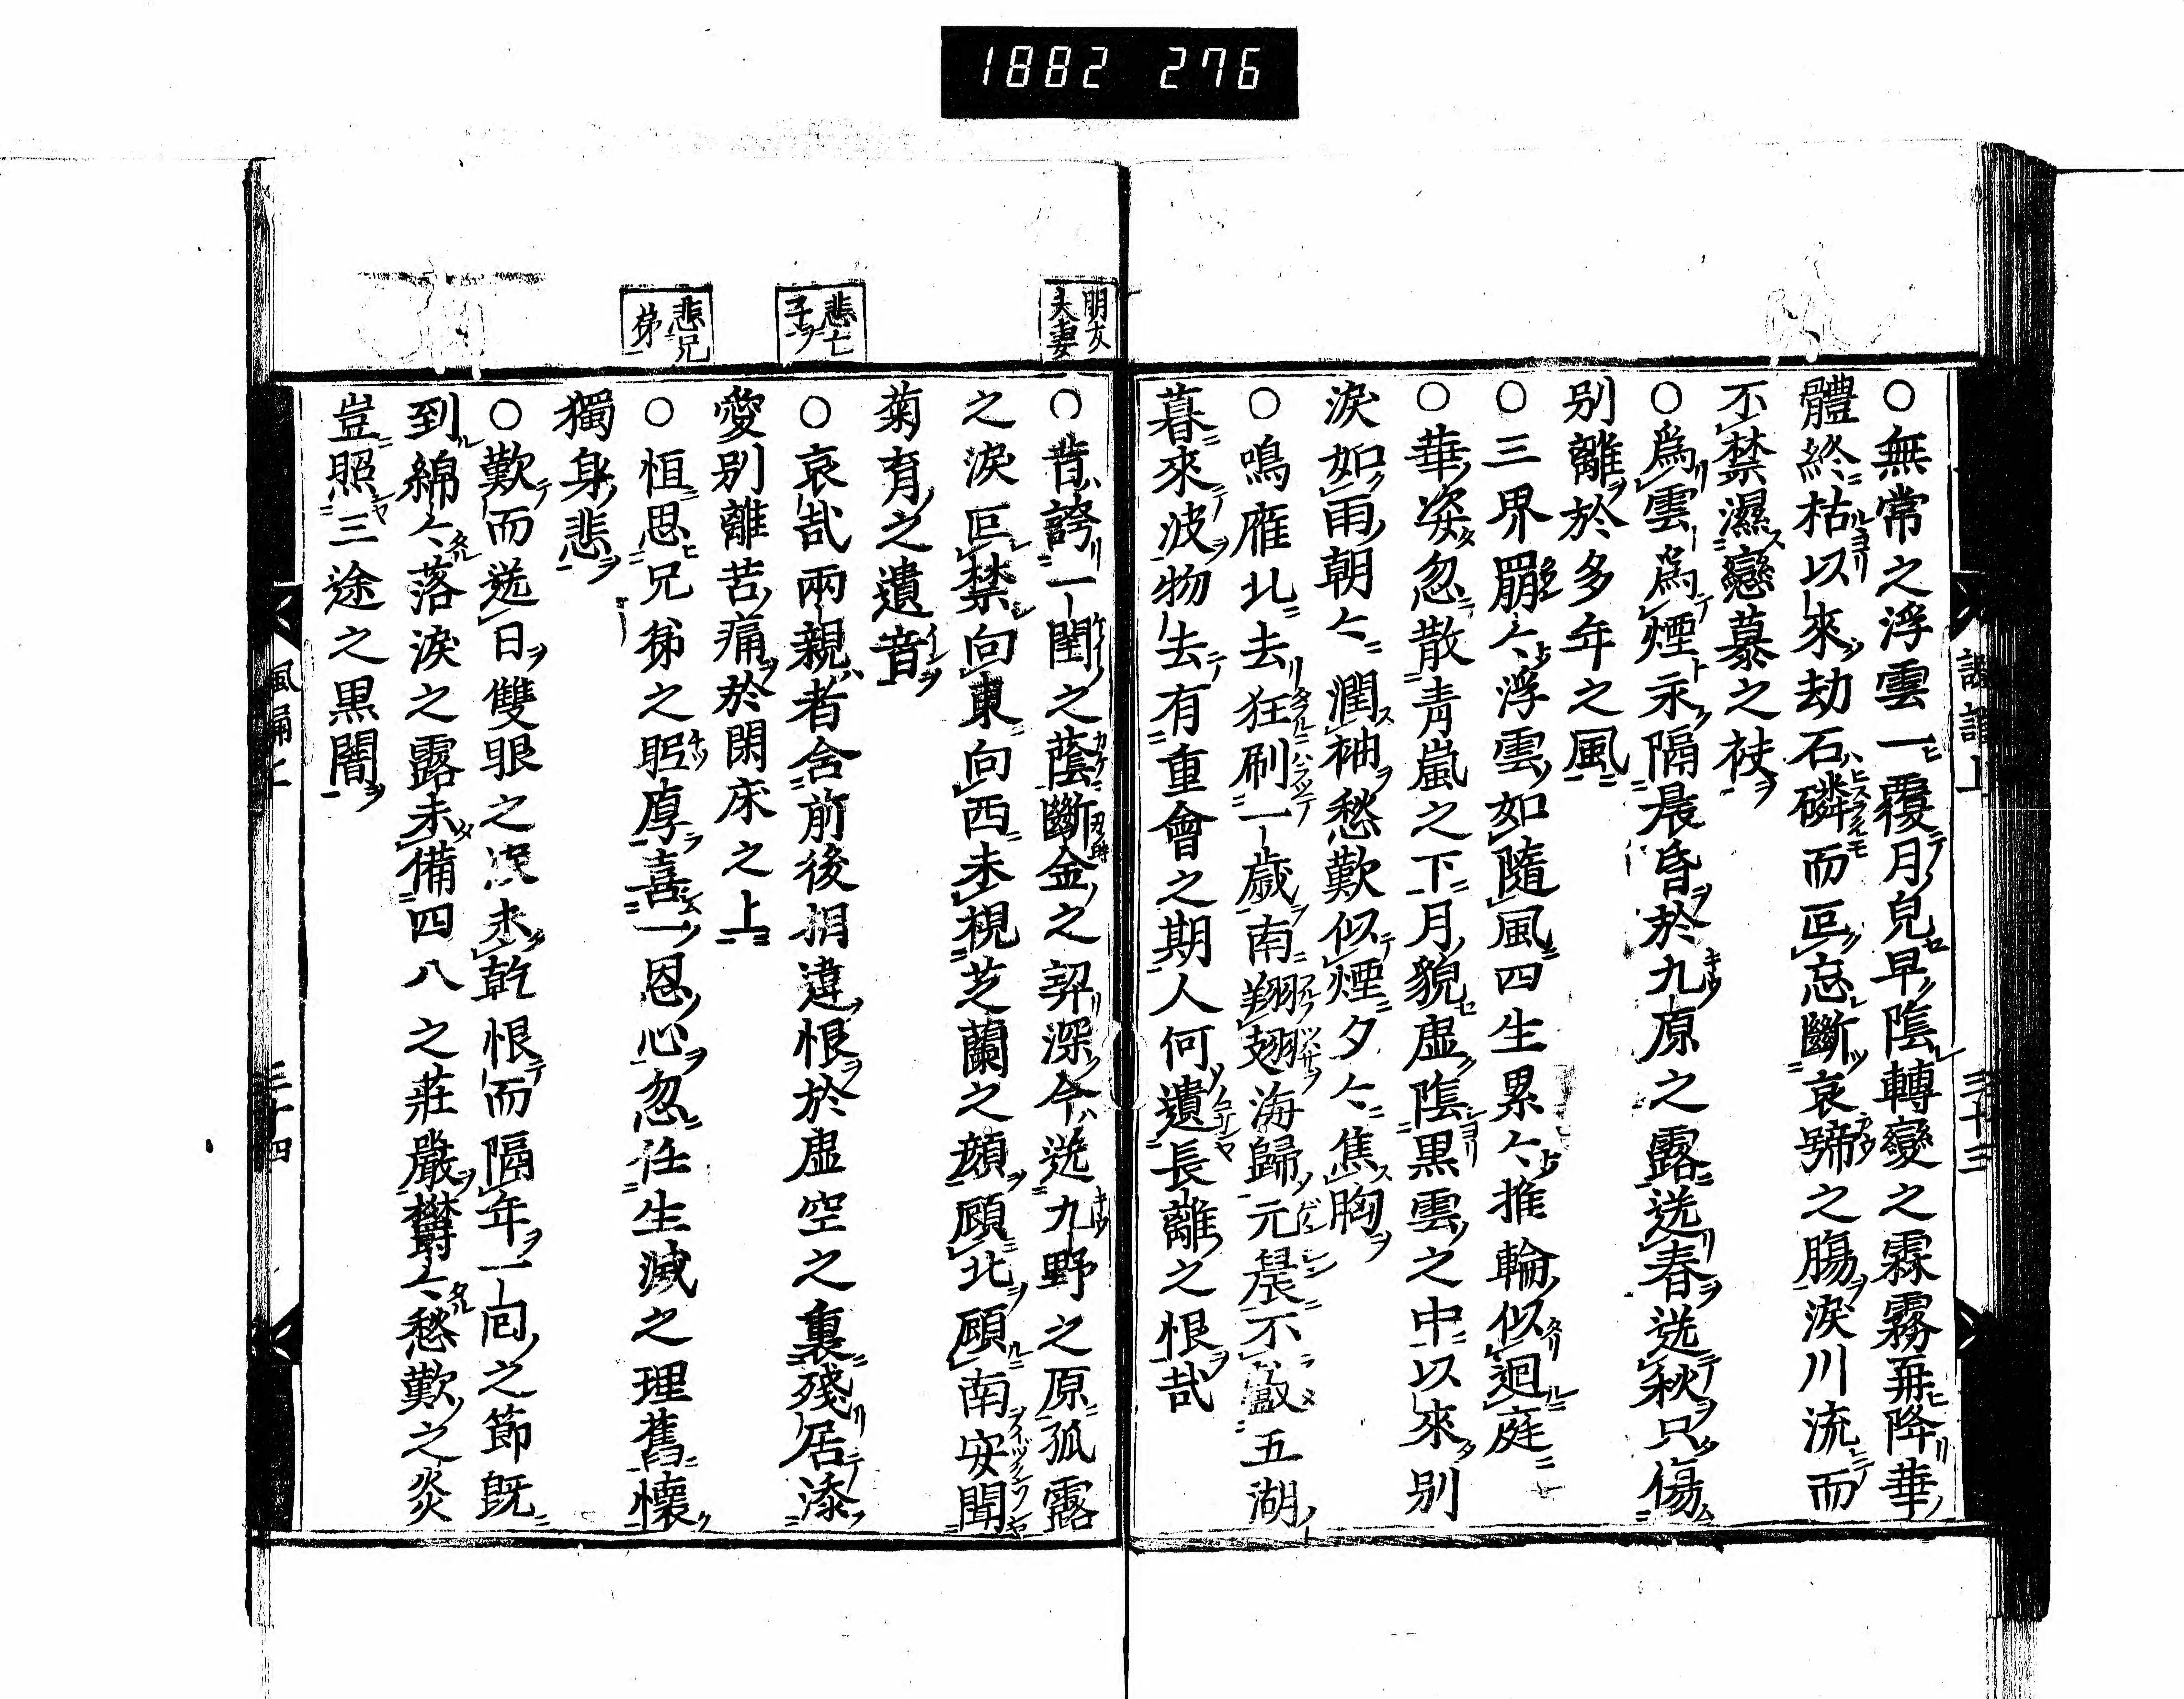 1882 276
○無常之浮雲一覆月皃早陰轉變之霖霧再降華
體終枯以來劫石磷而叵忘斷哀啼之膓淚川流而
不禁濕戀慕之袂
○爲雲爲煙永隔晨昏於九原之露送春送秋只傷
別離於多年之風
○三界羂々浮雲如隨風四生累々推輪似迴庭
○華姿忽散青嵐之下月貌虛陰黑雲之中以來別
淚如雨朝々潤袖愁歎似煙夕々焦胸
○鳴雁北去狂刷一歲南翔翅海歸元晨不 五湖
暮來波物去有重會之期人何遺長離之恨哉
三十三
朋友
夫妻
○昔誇一閨之蔭斷金之契深今送九野之原孤露
之淚叵禁向東向西未視芝蘭之顔頋北頋南安聞
菊育之遺音
悲亡
子ヲ
○哀哉兩親者含前後相違恨於虛空之裏殘居添
愛別離苦痛於閑床之上
悲兄
弟
○恒思兄弟之眤厚喜一恩心忽任生滅之理舊懷
獨身悲
○歎而送日雙眼之淚未乾恨而隔年一回之節既
到綿々落淚之露未備四八之莊嚴欝々愁歎之炎
豈照三途之黑闇
三十四